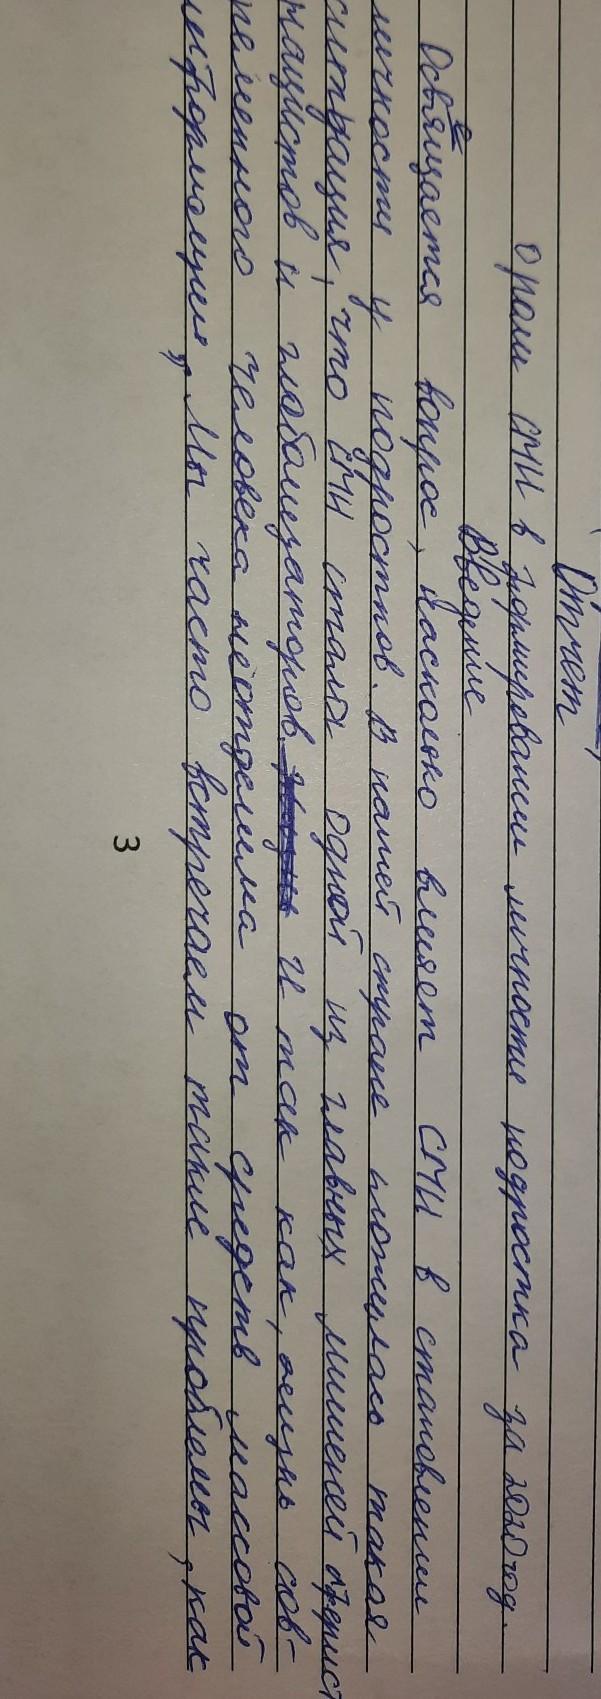 Отчет
о роли СМИ в формировании личности подростка за 2020 год.
Введение
Освещается вопрос, насколько влияет СМИ в становлении
личности у подростков. В нашей стране сложилась такая
ситуация, что СМИ стала одной из главных мишеней
нацистов и глобализаторов. И так как, жизнь сов-
ременного человека неотделима от средств массовой
информации, Мы часто встречаем такие проблемы, как
3